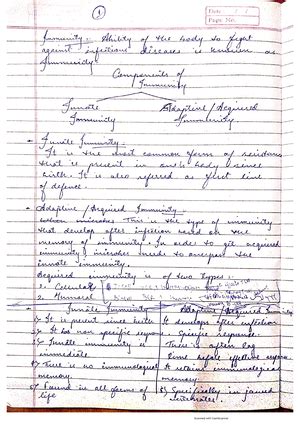 1
Date
Page No.
Immunity: Ability of the body to fight
against infectious diseases is known as
Immunity
Components of
Immunity
Innate Adaptive/Acquired
Immunity Immunity
Innate Immunity:
It is the most common form of
that is present in each body since
birth. It is also referred as first line
of defence.
Adaptive/Acquired Immunity
microbes This is the type of immunity
that develop after infection based on the
memory of immunity. In order to get acquired
immunity, microbes needs to
innate immunity.
Acquired immunity is of two types:
1. Cellular
2. Humoral
Innate Immunity Adaptive/Acquired Immunity
It is present since birth It develops after infection
It has non specific response Specific response
Innate immunity is There is after lag
immediate time
There is no immunological It retains immunological
memory. memory.
Found in all forms of Specifically in jawed
life vertebrates.